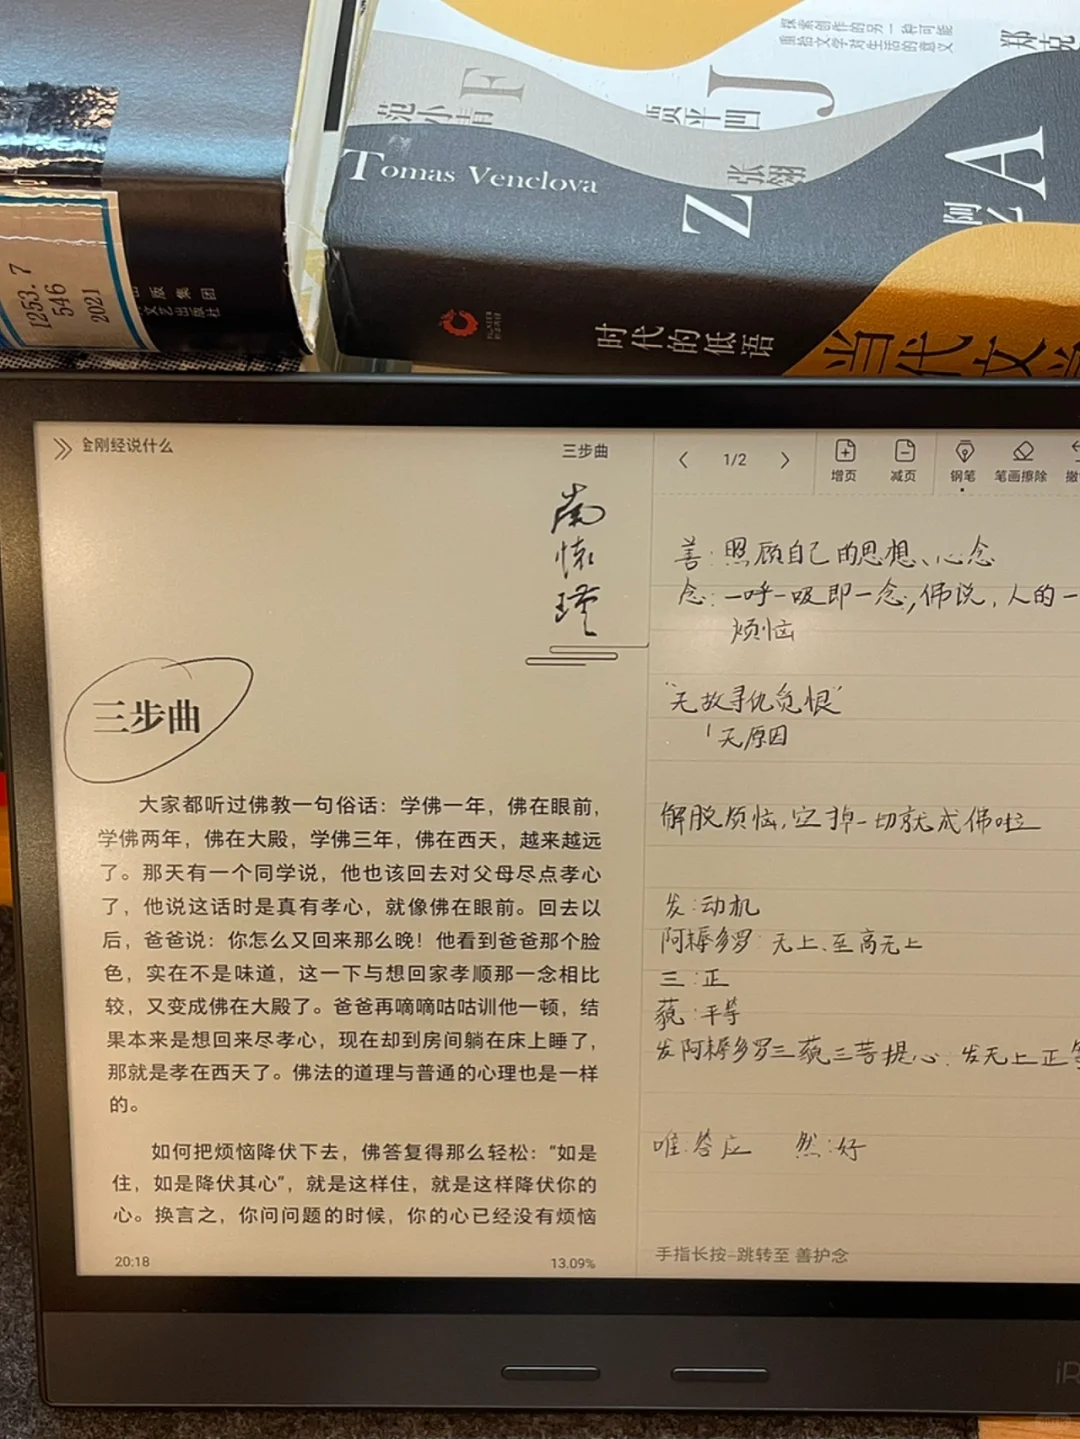 探索创作的另一种可能
重给文学对生活的意义
郑克
J
F
范小青
贾平凹
Tomas Venclova
张翎
Z
A
阿乙
1253.7
546
2021
出版集团
文艺出版社
时代的低语
当代文学
金刚经说什么
三步曲
南怀瑾
三步曲
大家都听过佛教一句俗话：学佛一年，佛在眼前，
学佛两年，佛在大殿，学佛三年，佛在西天，越来越远
了。那天有一个同学说，他也该回去对父母尽点孝心
了，他说这话时是真有孝心，就像佛在眼前。回去以
后，爸爸说：你怎么又回来那么晚！他看到爸爸那个脸
色，实在不是味道，这一下与想回家孝顺那一念相比
较，又变成佛在大殿了。爸爸再嘀嘀咕咕训他一顿，结
果本来是想回来尽孝心，现在却到房间躺在床上睡了，
那就是孝在西天了。佛法的道理与普通的心理也是一样
的。
如何把烦恼降伏下去，佛答复得那么轻松：“如是
住，如是降伏其心”，就是这样住，就是这样降伏你的
心。换言之，你问问题的时候，你的心已经没有烦恼
20:18
13.09%
1/2
增页
减页
钢笔
笔画擦除
撤
善：照顾自己的思想、心念
念：一呼一吸即一念，佛说，人的一
烦恼
“无故寻仇觅恨”
无原因
解脱烦恼，空掉一切就成佛啦
发：动机
阿耨多罗：无上、至高无上
三：正
藐：平等
发阿耨多罗三藐三菩提心：发无上正等
唯：答应 然：好
手指长按-跳转至 善护念
iR